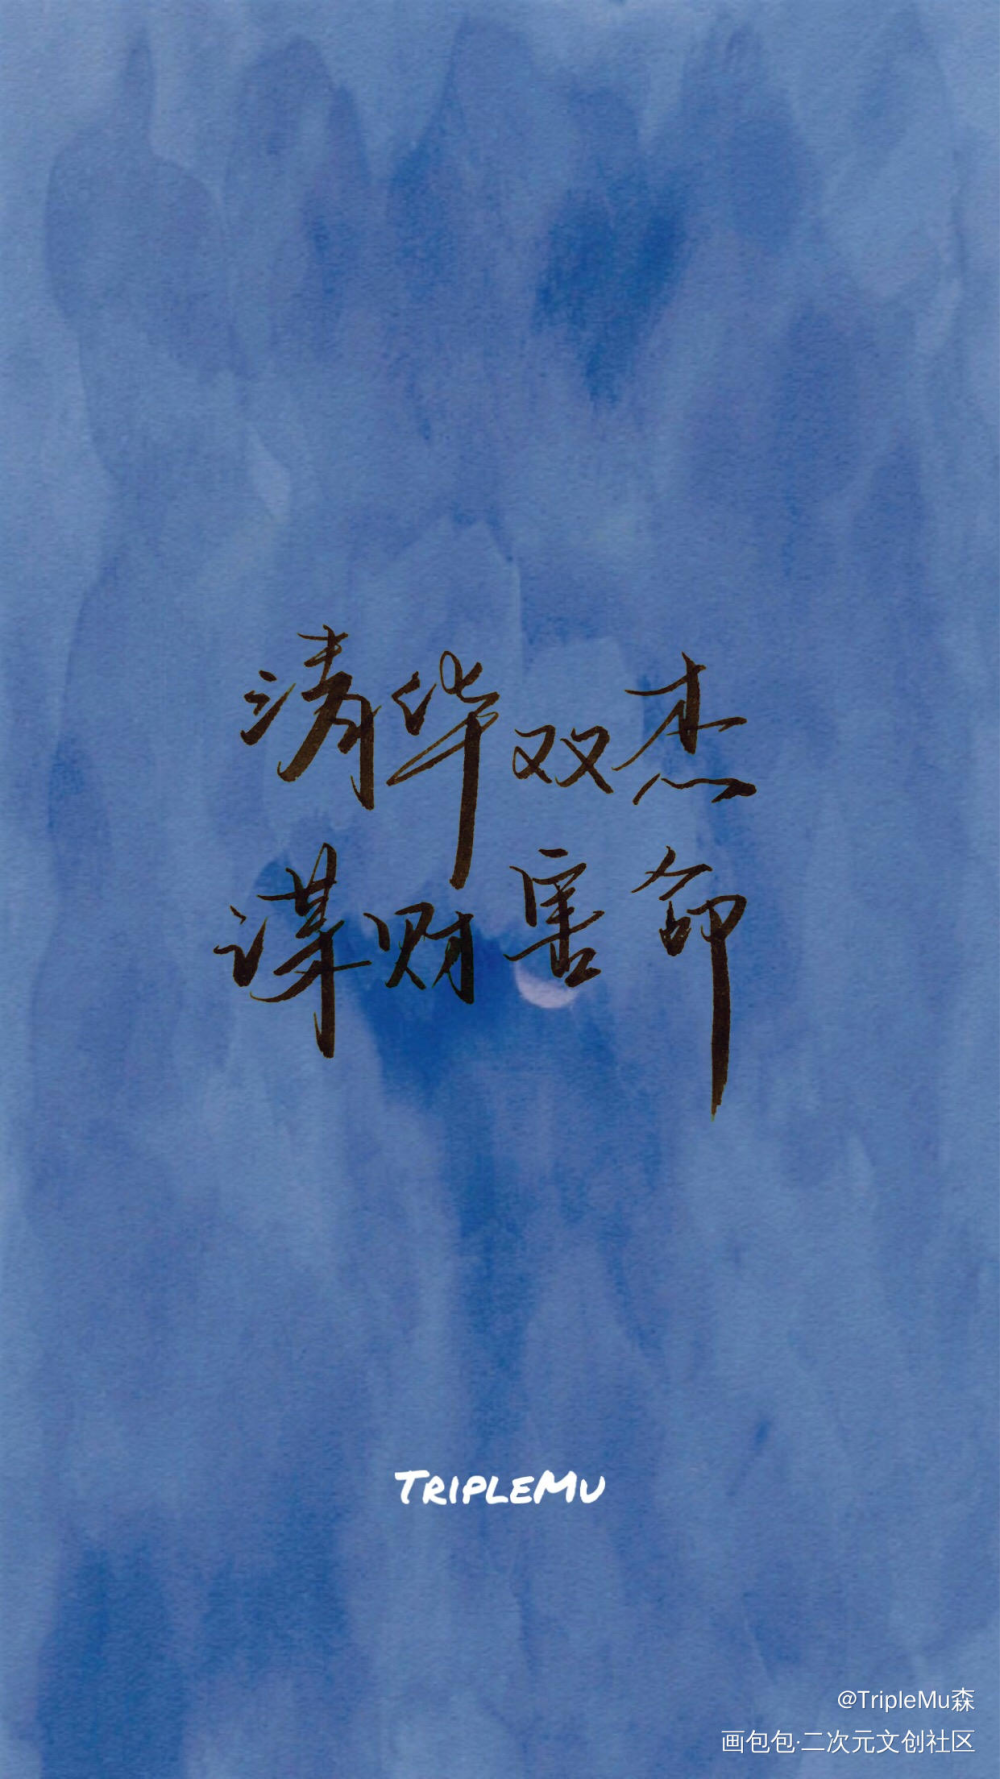 清华双杰
谋财害命
TripleMu
@TripleMu森
画包包·二次元文创社区